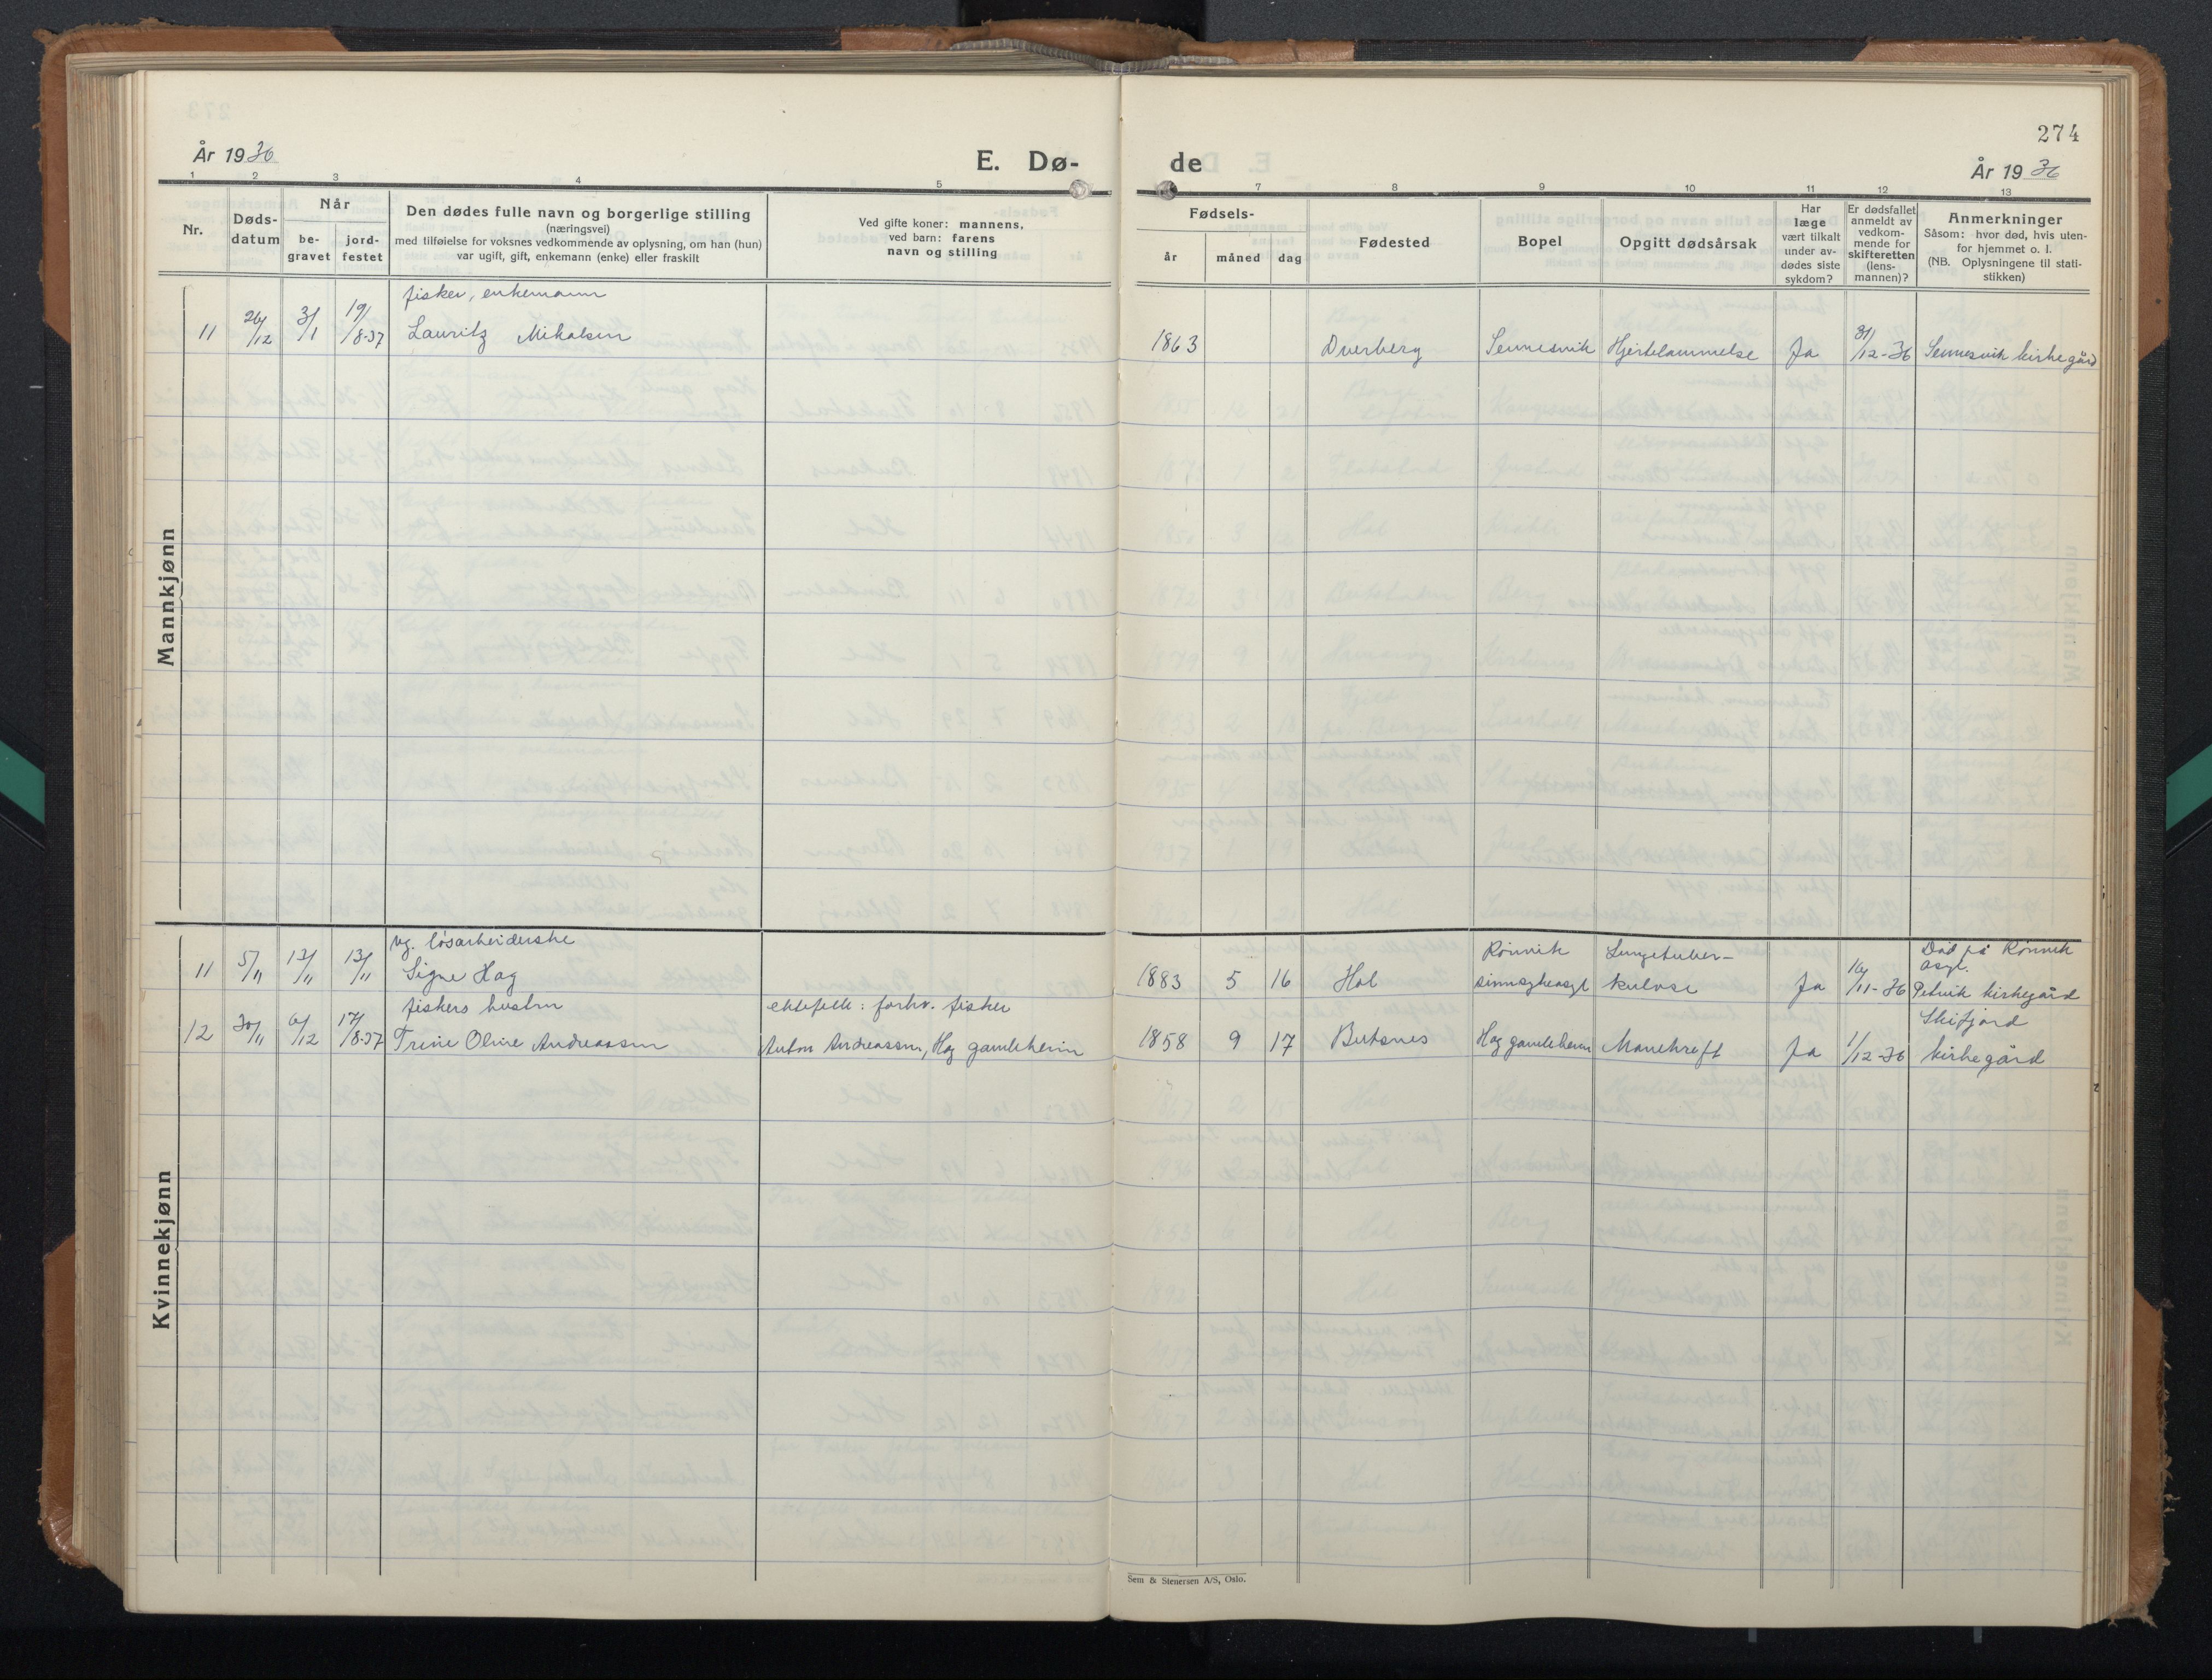 274
År 1936
E. Dø-
de
År 1936
1
2
3
4
5
7
8
9
10
11
12
13
Nr.
Døds-
datum
Når
be-
gravet
jord-
festet
Den dødes fulle navn og borgerlige stilling
(næringsvei)
med tilføielse for voksnes vedkommende av oplysning, om han (hun)
var ugift, gift, enkemann (enke) eller fraskilt
Ved gifte koner: mannens,
ved barn: farens
navn og stilling
Fødsels-
år
måned
dag
Fødested
Bopel
Opgitt dødsårsak
Har
læge
vært tilkalt
under av-
dødes siste
sykdom?
Er dødsfallet
anmeldt av
vedkom-
mende for
skifteretten
(lens-
mannen)?
Anmerkninger
Såsom: hvor død, hvis uten-
for hjemmet o. l.
(NB. Oplysningene til stati-
stikken)
Mannkjønn
fisker, enkemann
11 26/12 3/1 19/8-37 Lauritz Mikalsen 1863 Dverberg Sennesvik Hjertelammelse Ja 31/12-36 Sennesvik kirkegård
Kvinnekjønn
ug. løsarbeiderske Rønvik Lungetuber- Død på Rønvik
asyl.
11 5/11 13/11 13/11 Signe Hag 1883 5 16 Hol sinnsykeasyl kulose Ja 16/11-36 Petvik kirkegård
fiskers hustru ektefelle: forhv. fisker Skifjord
12 30/11 6/12 17/8-37 Trine Oline Andreassen Anton Andreassen, Hag gamlehjem 1858 9 17 Buksnes Hag gamlehjem Mavekreft Ja 1/12-36 kirkegård
Sem & Stenersen A/S, Oslo.